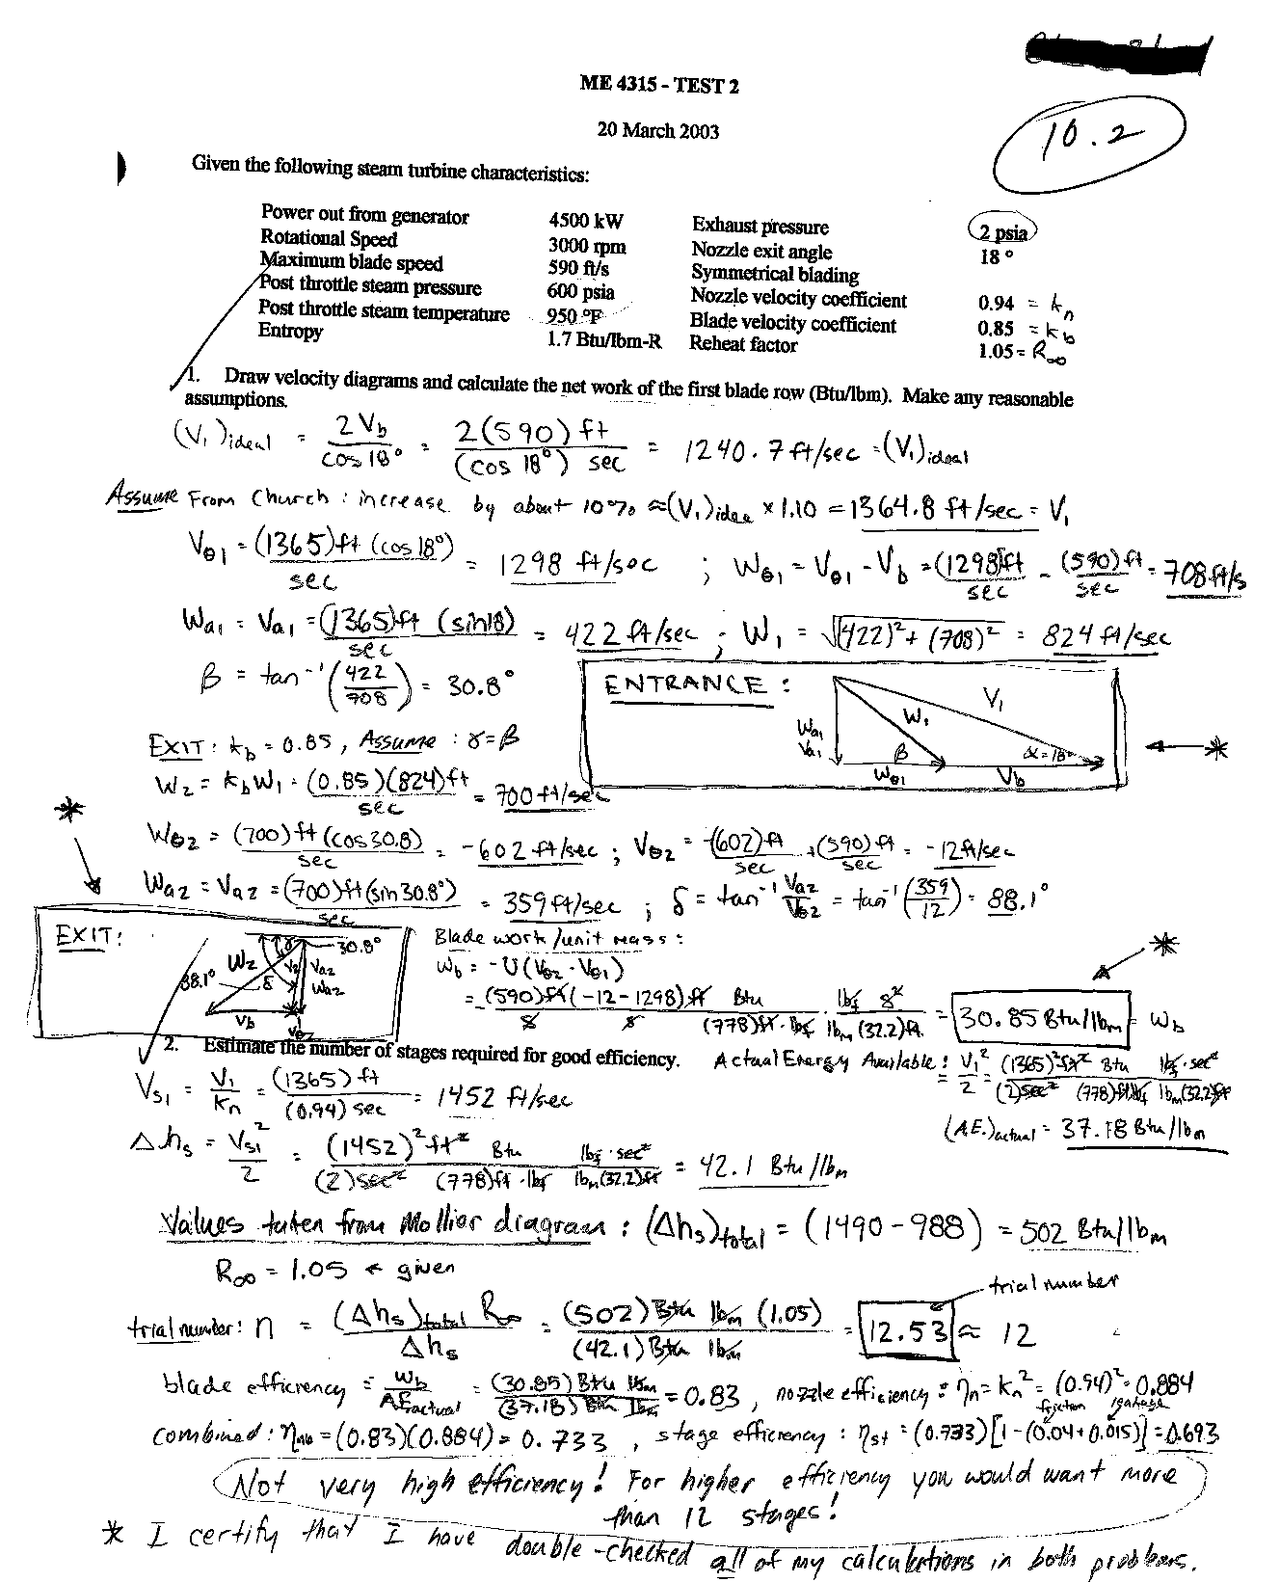 ME 4315 - TEST 2
20 March 2003
10.2
Given the following steam turbine characteristics:
Power out from generator 4500 kW Exhaust pressure 2 psia
Rotational Speed 3000 rpm Nozzle exit angle 18 °
Maximum blade speed 590 ft/s Symmetrical blading
Post throttle steam pressure 600 psia Nozzle velocity coefficient 0.94 = kn
Post throttle steam temperature 950 °F Blade velocity coefficient 0.85 = kb
Entropy 1.7 Btu/lbm-R Reheat factor 1.05 = R∞
1. Draw velocity diagrams and calculate the net work of the first blade row (Btu/lbm). Make any reasonable
assumptions.
(V₁)ideal = 2Vb / cos 18° = 2(590) ft / (cos 18°) sec = 1240.7 ft/sec = (V₁)ideal
Assume From Church: increase by about 10% ≈ (V₁)idea × 1.10 = 1364.8 ft/sec = V₁
Vθ1 = (1365)ft (cos 18°) / sec = 1298 ft/sec ; Wθ1 = Vθ1 - Vb = (1298)ft / sec - (590)ft / sec = 708 ft/s
Wa1 = Va1 = (1365)ft (sin18) / sec = 422 ft/sec ; W₁ = √(422)² + (708)² = 824 ft/sec
β = tan⁻¹(422/708) = 30.8°
ENTRANCE:
V₁
W₁
Wa1
Va1
β
α=18°
Wθ1
Vb
EXIT: kb = 0.85, Assume: γ=β
W₂ = kbW₁ = (0.85)(824)ft / sec = 700 ft/sec
Wθ2 = (700)ft(cos30.8) / sec = -602 ft/sec ; Vθ2 = -(602)ft / sec + (590)ft / sec = -12ft/sec
Wa2 = Va2 = (700)ft(sin30.8°) / sec = 359ft/sec ; δ = tan⁻¹ Va2/Vθ2 = tan⁻¹(359/12) = 88.1°
EXIT:
30.8°
W₂
γ
V₂
Va2
Wa2
88.1°
δ
Vb
Vθ2
Blade work/unit mass:
Wb = -U(Vθ2 - Vθ1)
= -(590)ft(-12-1298)ft / s s Btu / (778)ft·lbf lbf s² / lbm(32.2)ft = 30.85 Btu/lbm = Wb
2. Estimate the number of stages required for good efficiency. Actual Energy Available: V₁²/2 = (1365)²ft² / (2)sec² Btu / (778)ft·lbf lbf·sec² / lbm(32.2)ft
(A.E.)actual = 37.18 Btu/lbm
Vs1 = V₁/kn = (1365)ft / (0.94) sec = 1452 ft/sec
Δhs = Vs1²/2 = (1452)²ft² / (2)sec² Btu / (778)ft·lbf lbf·sec² / lbm(32.2)ft = 42.1 Btu/lbm
Values taken from Mollier diagram: (Δhs)total = (1490-988) = 502 Btu/lbm
R∞ = 1.05 ← given
trial number
trial number: n = (Δhs)total R∞ / Δhs = (502) Btu lbm (1.05) / (42.1) Btu lbm = 12.53 ≈ 12
blade efficiency = Wb / AEactual = (30.85) Btu lbm / (37.18) Btu lbm = 0.83, nozzle efficiency: ηn = kn² = (0.94)² = 0.884
friction leakage
combined: ηnb = (0.83)(0.884) = 0.733, stage efficiency: ηst = (0.733)[1-(0.04+0.015)] = 0.693
Not very high efficiency! For higher efficiency you would want more
than 12 stages!
* I certify that I have double-checked all of my calculations in both problems.